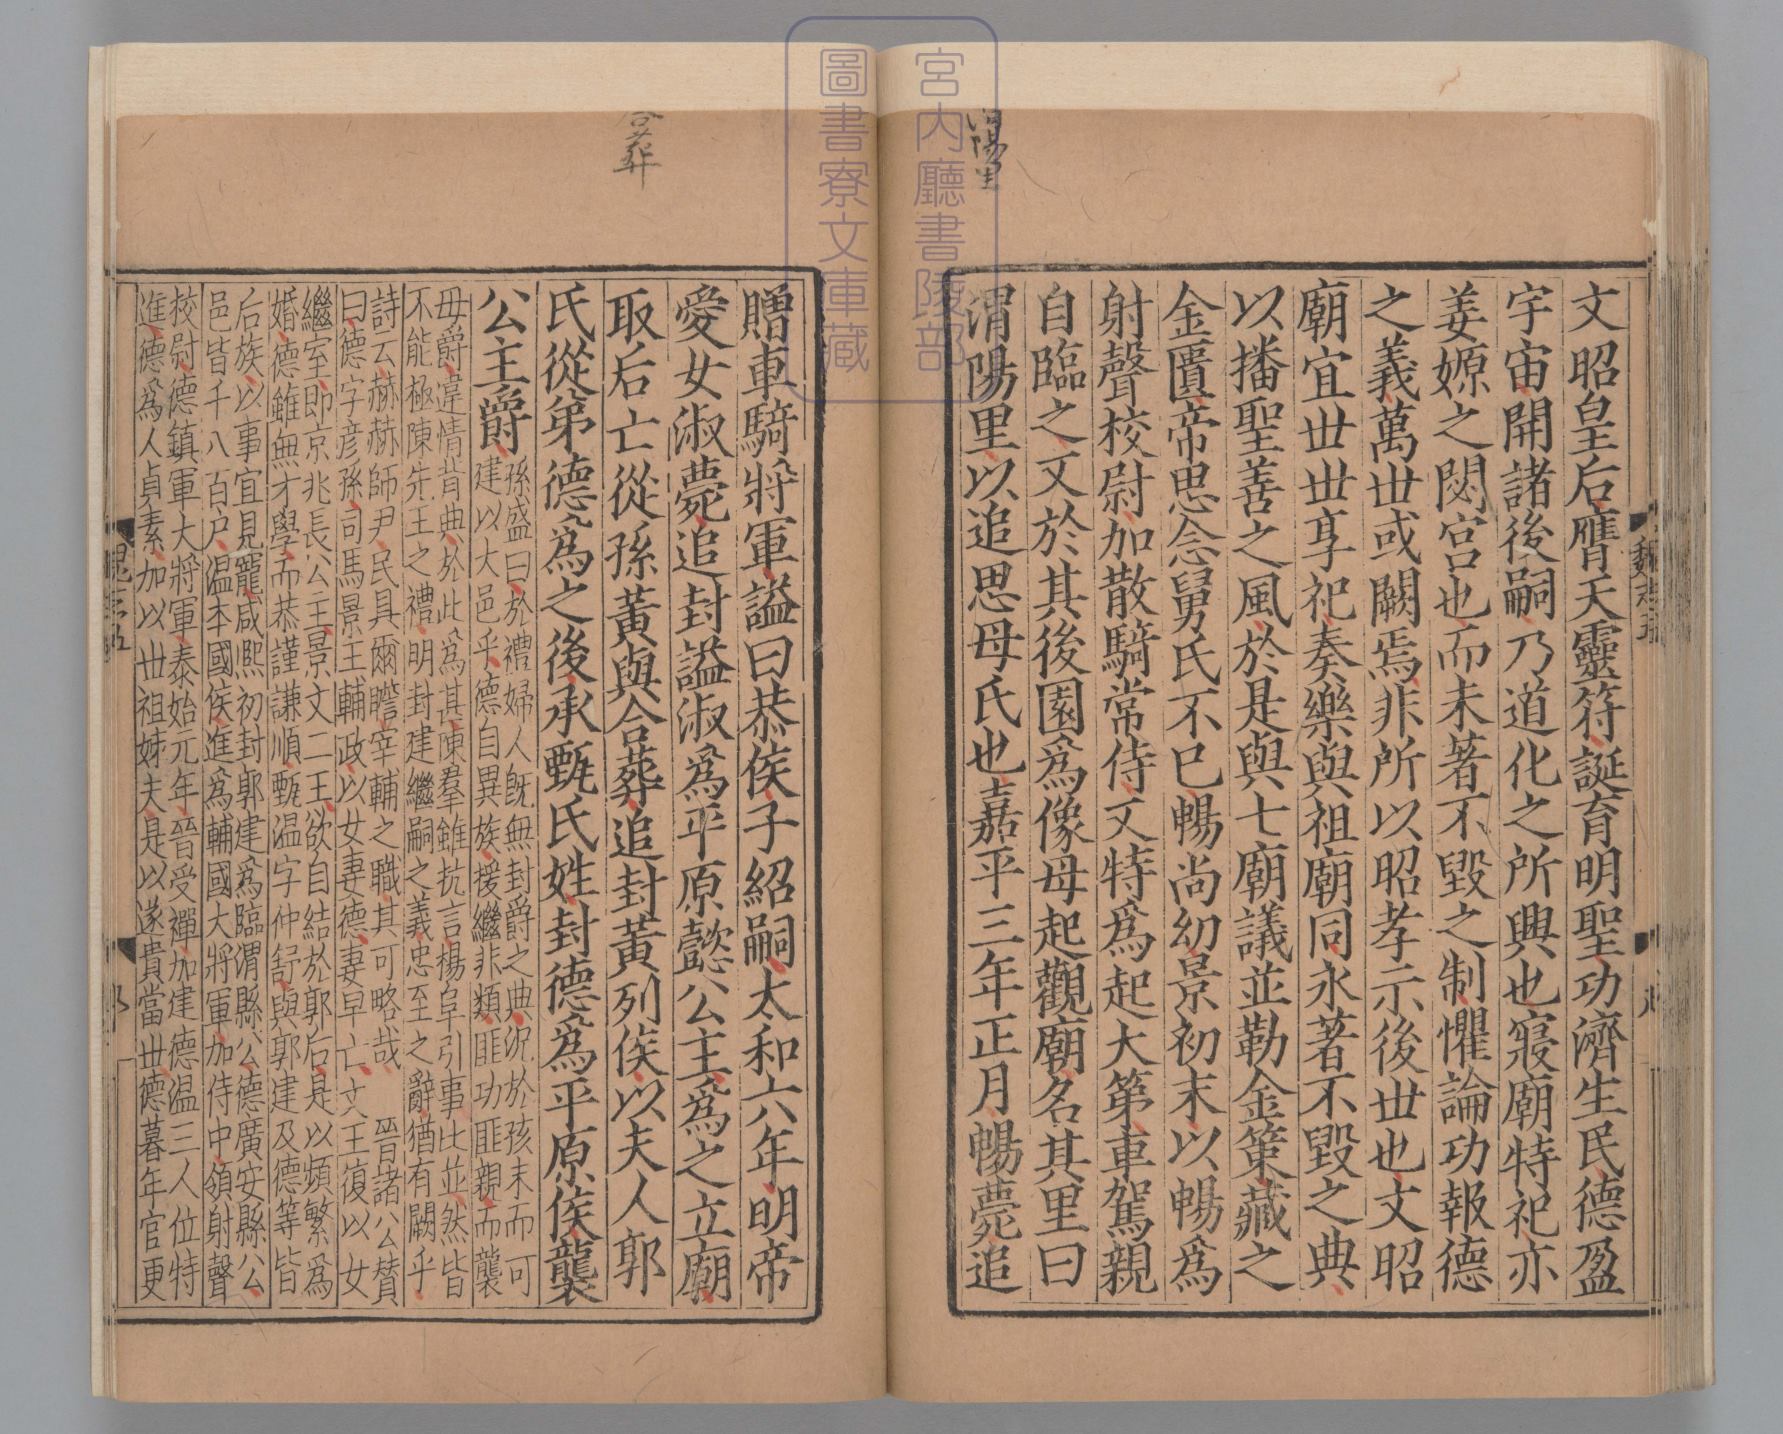 文昭皇后膺天靈符誕育明聖功濟生民德盈
宇宙開諸後嗣乃道化之所興也寢廟特祀亦
姜嫄之閟宮也而未著不毀之制懼論功報德
之義萬世或闕焉非所以昭孝示後世也文昭
廟宜世世享祀奏樂與祖廟同永著不毀之典
以播聖善之風於是與七廟議並勒金策藏之
金匱帝思念舅氏不已暢尚幼景初末以暢爲
射聲校尉加散騎常侍又特爲起大第車駕親
自臨之又於其後園爲像母起觀廟名其里曰
渭陽里以追思母氏也嘉平三年正月暢薨追
贈車騎將軍謚曰恭侯子紹嗣太和六年明帝
愛女淑薨追封謚淑爲平原懿公主爲之立廟
取后亡從孫黃與合葬追封黃列侯以夫人郭
氏從弟德爲之後承甄氏姓封德爲平原侯襲
公主爵
孫盛曰於禮婦人旣無封爵之典況於孩末而可
建以大邑乎德自異族援繼非類匪功匪親而襲
母爵違情背典於此爲甚陳羣雖抗言楊阜引事比並然皆
不能極陳先王之禮明封建繼嗣之義忠至之辭猶有闕乎
詩云赫赫師尹民具爾瞻宰輔之職其可略哉 晉諸公贊
曰德字彥孫司馬景王輔政以女妻德妻早亡文王復以女
繼室即京兆長公主景文二王欲自結於郭后是以頻繁爲
婚德雖無才學而恭謹謙順甄温字仲舒與郭建及德等皆
后族以事宜見寵咸熙初封郭建爲臨渭縣公德廣安縣公
邑皆千八百户温本國侯進爲輔國大將軍加侍中領射聲
校尉德鎮軍大將軍泰始元年晉受禪加建德温三人位特
進德爲人貞素加以世祖姊夫是以遂貴當世德暮年官更
合葬
渭陽里
魏志五
宮内廳書陵部
圖書寮文庫藏